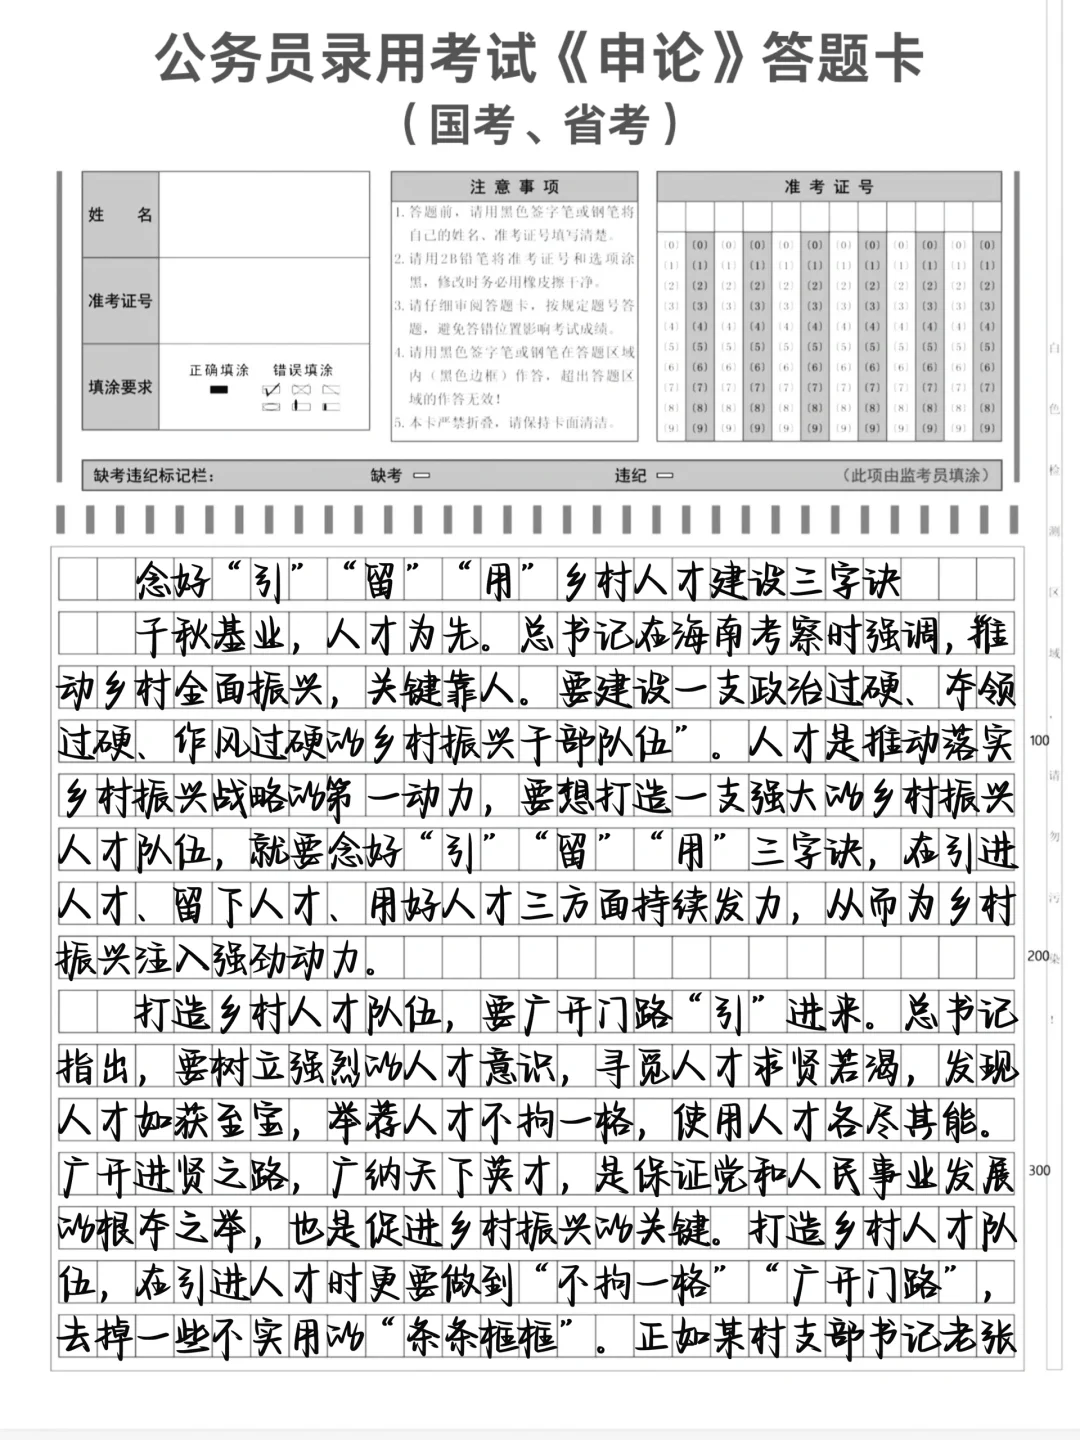 公务员录用考试《申论》答题卡
（国考、省考）
姓 名
准考证号
填涂要求
正确填涂 错误填涂
注意事项
1.答题前，请用黑色签字笔或钢笔将
自己的姓名、准考证号填写清楚。
2.请用2B铅笔将准考证号和选项涂
黑，修改时务必用橡皮擦干净。
3.请仔细审阅答题卡，按规定题号答
题，避免答错位置影响考试成绩。
4.请用黑色签字笔或钢笔在答题区域
内（黑色边框）作答，超出答题区
域的作答无效！
5.本卡严禁折叠，请保持卡面清洁。
准考证号
[0] [0] [0] [0] [0] [0] [0] [0] [0] [0] [0] [0]
[1] [1] [1] [1] [1] [1] [1] [1] [1] [1] [1] [1]
[2] [2] [2] [2] [2] [2] [2] [2] [2] [2] [2] [2]
[3] [3] [3] [3] [3] [3] [3] [3] [3] [3] [3] [3]
[4] [4] [4] [4] [4] [4] [4] [4] [4] [4] [4] [4]
[5] [5] [5] [5] [5] [5] [5] [5] [5] [5] [5] [5]
[6] [6] [6] [6] [6] [6] [6] [6] [6] [6] [6] [6]
[7] [7] [7] [7] [7] [7] [7] [7] [7] [7] [7] [7]
[8] [8] [8] [8] [8] [8] [8] [8] [8] [8] [8] [8]
[9] [9] [9] [9] [9] [9] [9] [9] [9] [9] [9] [9]
缺考违纪标记栏： 缺考 违纪 （此项由监考员填涂）
念好“引”“留”“用”乡村人才建设三字诀
千秋基业，人才为先。总书记在海南考察时强调，推
动乡村全面振兴，关键靠人。要建设一支政治过硬、本领
过硬、作风过硬的乡村振兴干部队伍”。人才是推动落实
100
乡村振兴战略的第一动力，要想打造一支强大的乡村振兴
人才队伍，就要念好“引”“留”“用”三字诀，在引进
人才、留下人才、用好人才三方面持续发力，从而为乡村
振兴注入强劲动力。
200
打造乡村人才队伍，要广开门路“引”进来。总书记
指出，要树立强烈的人才意识，寻觅人才求贤若渴，发现
人才如获至宝，举荐人才不拘一格，使用人才各尽其能。
广开进贤之路，广纳天下英才，是保证党和人民事业发展
300
的根本之举，也是促进乡村振兴的关键。打造乡村人才队
伍，在引进人才时更要做到“不拘一格”“广开门路”，
去掉一些不实用的“条条框框”。正如某村支部书记老张
白色检测区域，请勿污染！